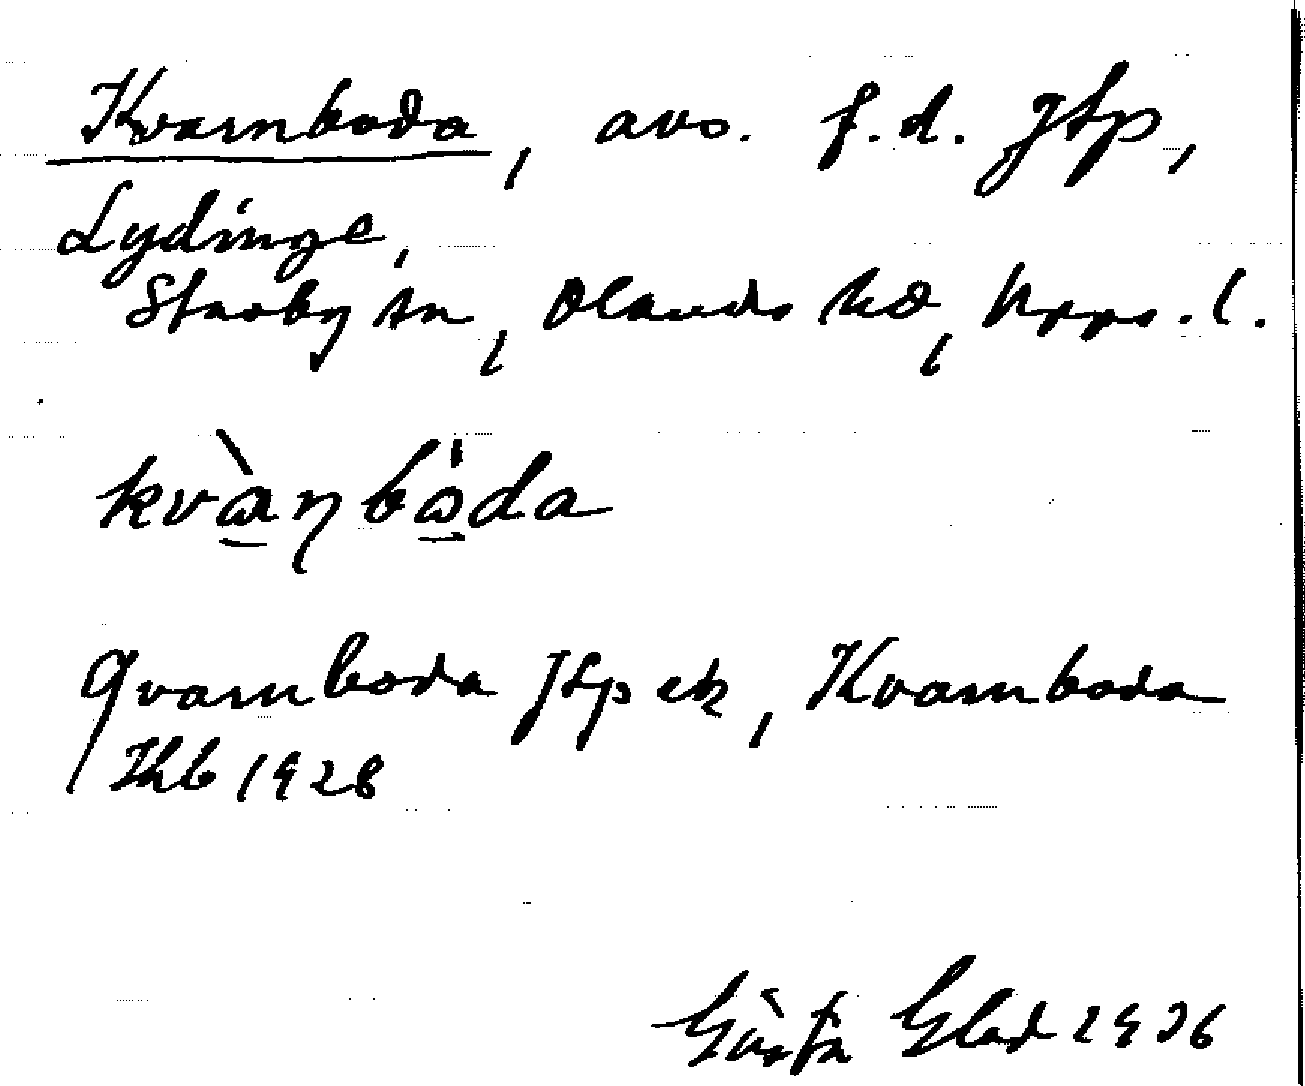 Kvarnboda, avs. f.d. Jtp,
Lydinge,
Stavby sn, Olands hd, Upps. l.
kvàꞃbo̠da
Qvarnboda Jtp ek, Kvarnboda
Jhb 1928
Gösta Glad 1936